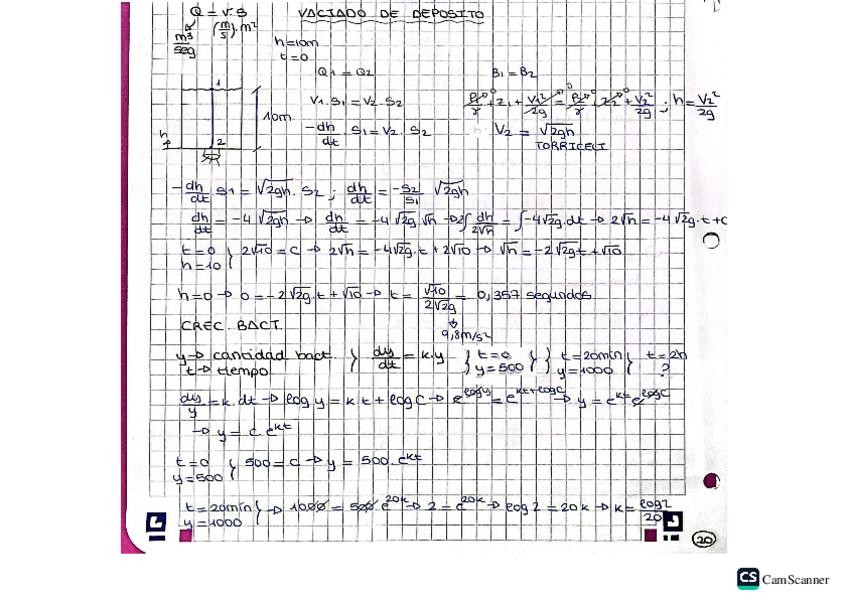 Q = v.S
VACIADO DE DEPOSITO
m³/seg (m/s).m²
h=10m
t=0
Q1 = Q2
B1 = B2
V1.S1 = V2.S2
P1/γ + z1 + V1²/2g = P2/γ + z2 + V2²/2g ; h = V2²/2g
1
10m
-dh/dt . S1 = V2. S2
V2 = √2gh
h
2
TORRICELI
-dh/dt . S1 = √2gh. S2 ; dh/dt = -S2/S1 √2gh
dh/dt = -4 √2gh → dh/dt = -4 √2g √h → 2∫ dh/2√h = ∫-4√2g.dt → 2√h = -4 √2g.t+C
t=0
h=10 } 2√10 = C → 2√h = -4√2g.t + 2√10 → √h = -2√2gt+√10
h=0 → 0 = -2√2g.t + √10 → t = √10/2√2g = 0,357 segundos
9,8m/s²
CREC. BACT.
y → cantidad bact.
t → tiempo } dy/dt = k.y } t=0 y=500 } } t=20min y=1000 } t=2h ?
dy/y = k.dt → log y = k.t + log C → e^logy = e^kt+logC → y = e^kt e^logC
→ y = c.e^kt
t=0
y=500 } 500 = C → y = 500.e^kt
t=20min
y=1000 } → 1000 = 500.e^20k → 2 = e^20k → log 2 = 20k → k = log2/20
20
CS CamScanner